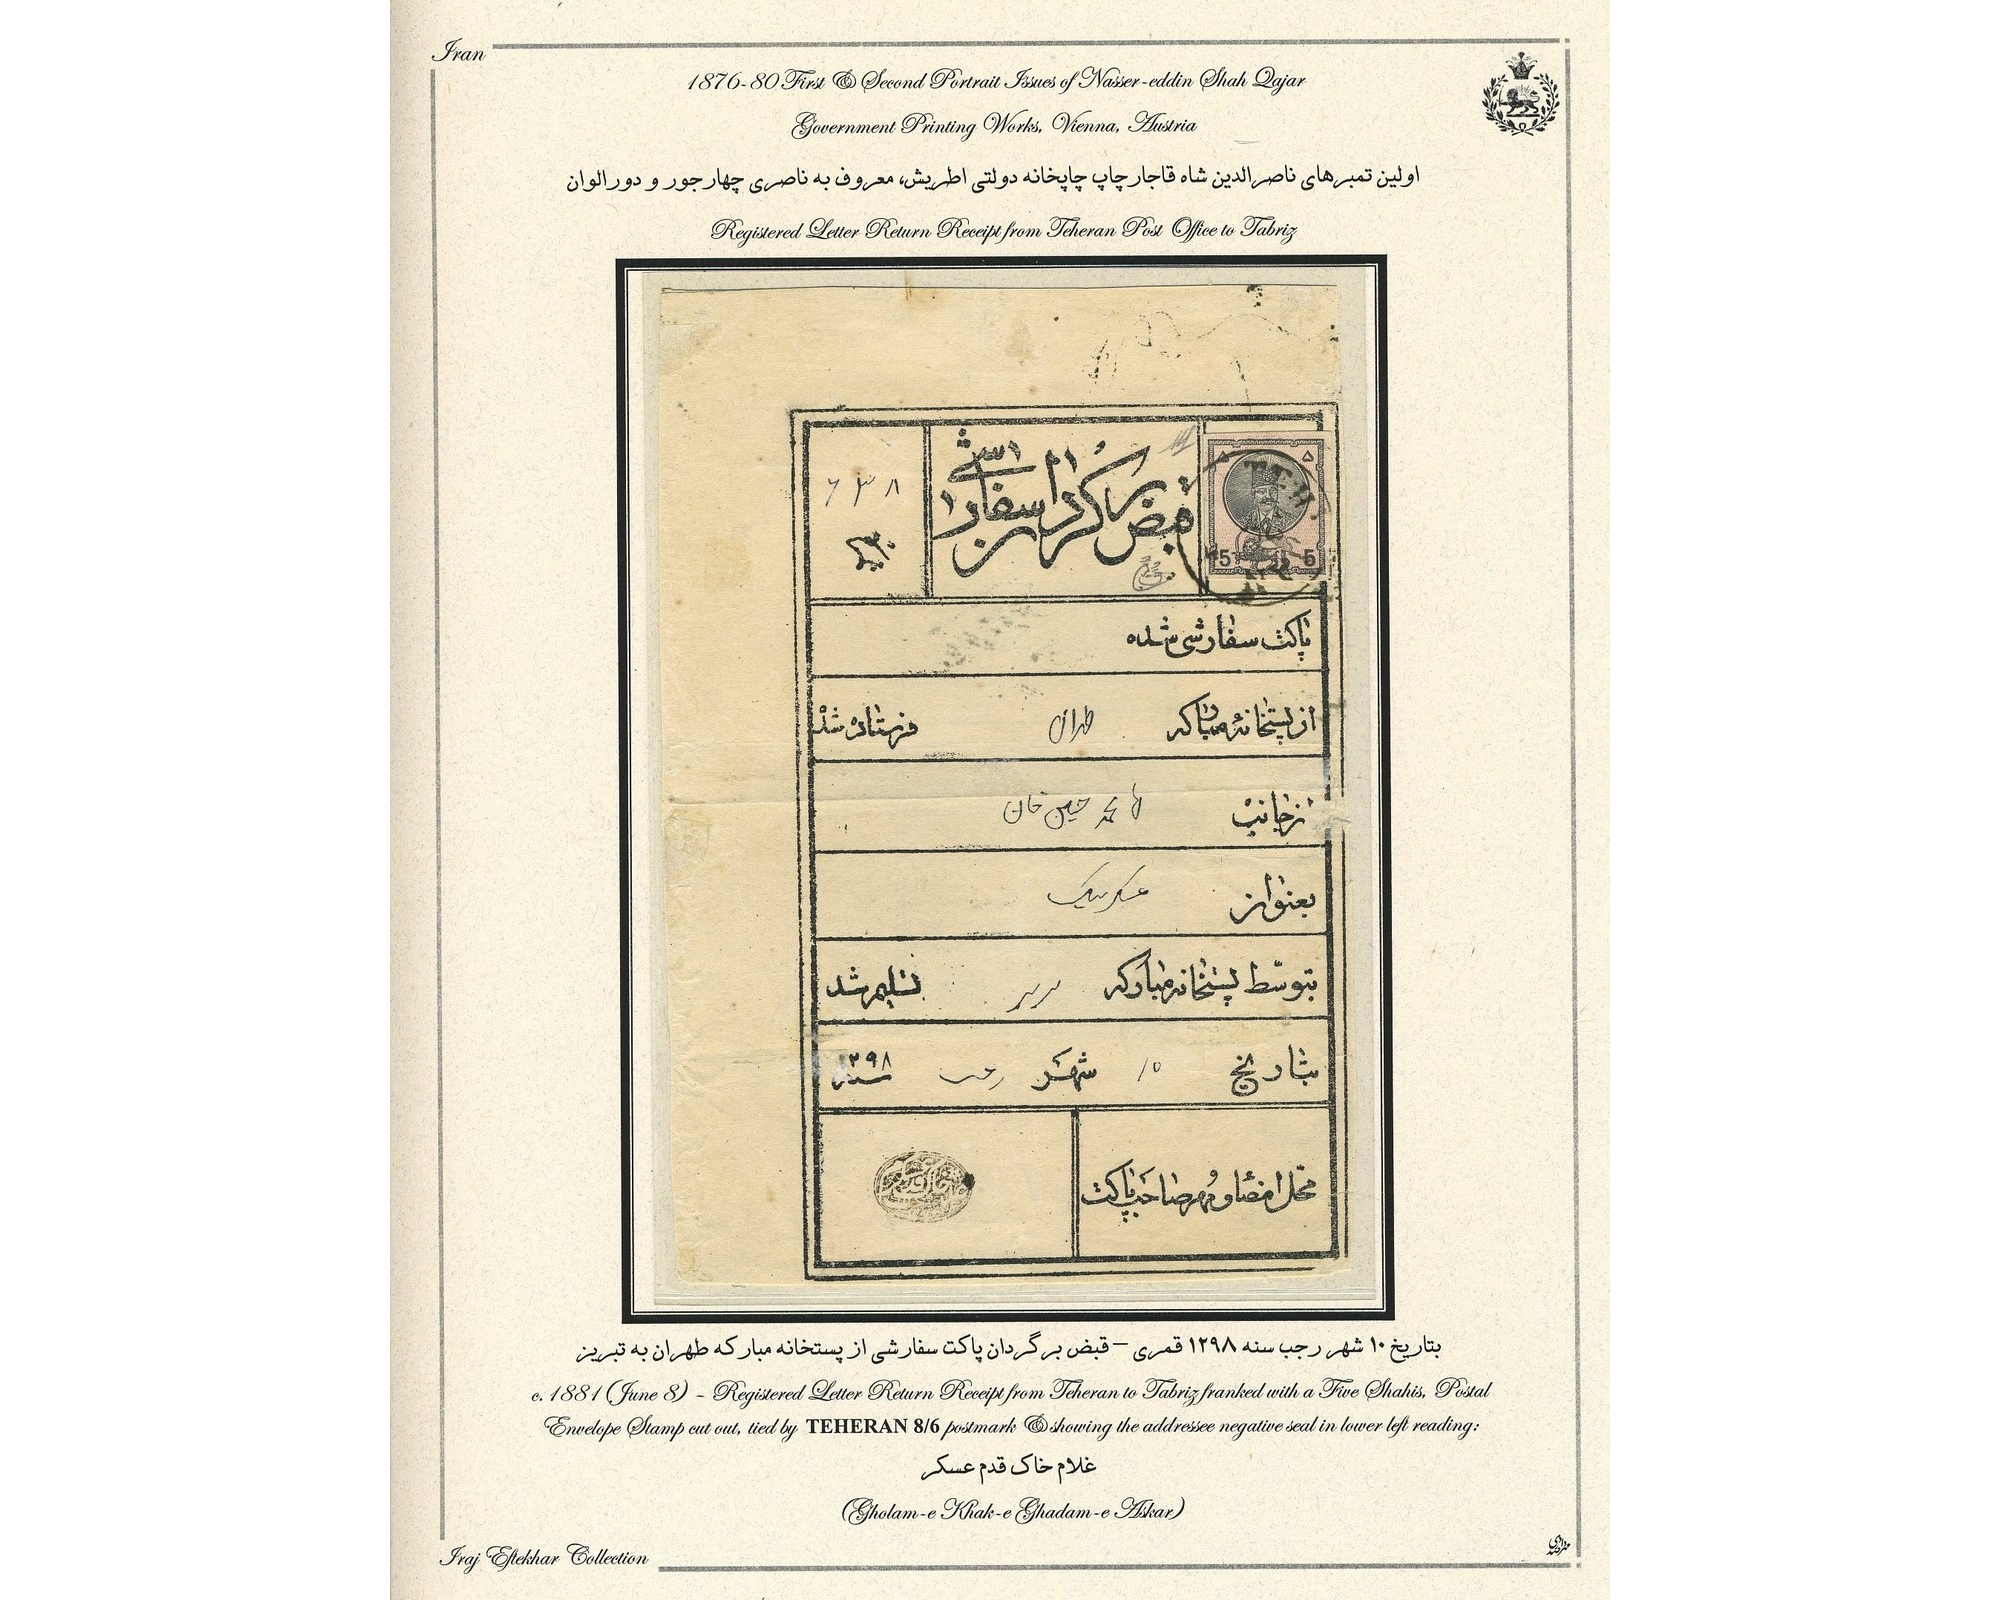 Iran
1876-80 First & Second Portrait Issues of Nasser-eddin Shah Qajar
Government Printing Works, Vienna, Austria
اولین تمبرهای ناصرالدین شاه قاجار چاپ چاپخانه دولتی اطریش، معروف به ناصری چهارجور و دورالوان
Registered Letter Return Receipt from Teheran Post Office to Tabriz
قبض برگردان سفارشی
۶۳۸
۵
TEH
5 5
پاکت سفارشی شده
از پستخانه مبارکه طهران فرستاده شد
از جانب محمد حسین خان
بعنوان عسکر بیک
بتوسط پستخانه مبارکه تبریز تسلیم شد
بتاریخ ۱۰ شهر رجب سنه ۱۲۹۸
محل امضا و مهر صاحب پاکت
بتاریخ ۱۰ شهر رجب سنه ۱۲۹۸ قمری – قبض برگردان پاکت سفارشی از پستخانه مبارکه طهران به تبریز
c. 1881 (June 8) - Registered Letter Return Receipt from Teheran to Tabriz franked with a Five Shahis, Postal
Envelope Stamp cut out, tied by TEHERAN 8/6 postmark & showing the addressee negative seal in lower left reading:
غلام خاک قدم عسکر
(Gholam-e Khak-e Ghadam-e Askar)
Iraj Eftekhar Collection